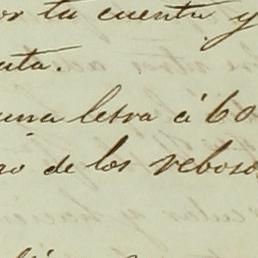 or tu cuenta y
uta.
una letra á 60
io de los reboso